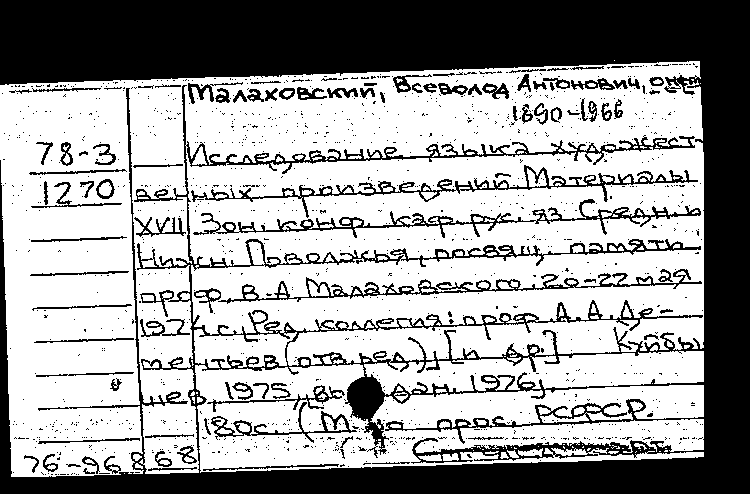 Малаховский, Всеволод Антонович,
1890-1966
78-3 Исследование языка художест-
1270 венных произведений. Материалы
XVII Зон. конф. каф. рус. яз Средн. и
Нижн. Поволжья, посвящ. памяти
проф. В.А. Малаховского. 20-22 мая
1974 г. [Ред. коллегия: проф А.А. Де-
ментьев (отв. ред.), [и др]. Куйбы
шев, 1975, дан. 1976.
180с. (М прос. РСФСР.
76-96868